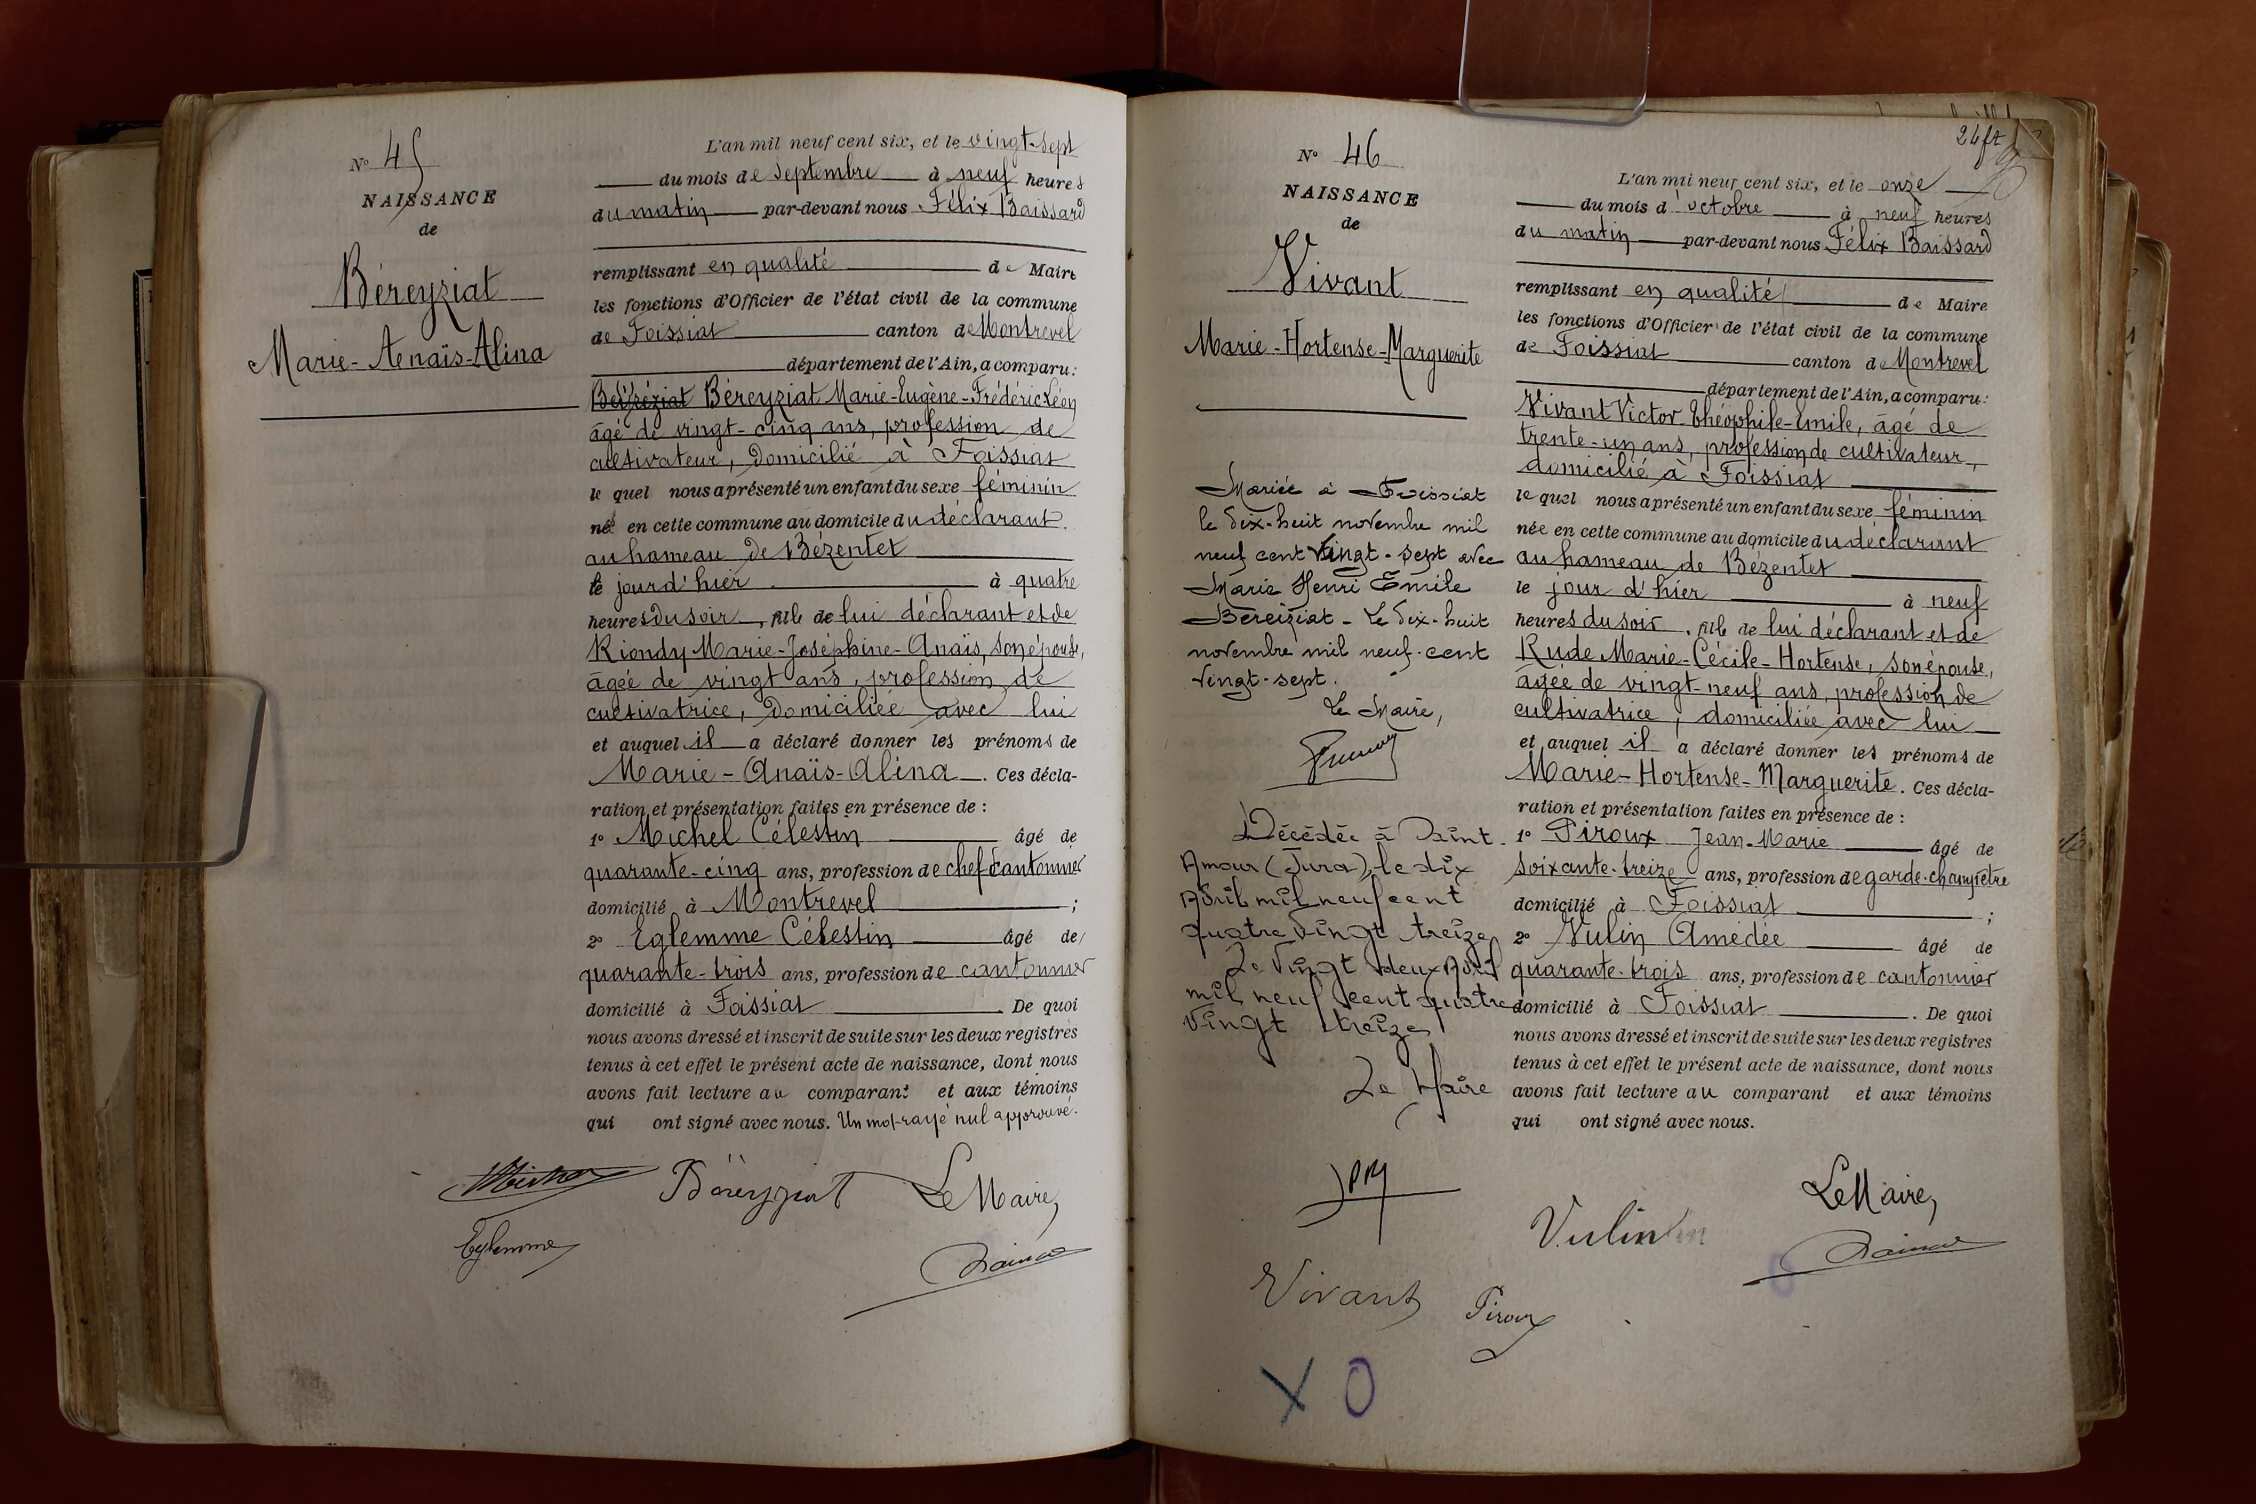 N° 45
NAISSANCE
de
Béreyziat
Marie-Anaïs-Alina
L'an mil neuf cent six, et le vingt-sept
du mois de Septembre à neuf heures
du matin par-devant nous Félix Baissard
remplissant en qualité de Maire
les fonctions d'Officier de l'état civil de la commune
de Foissiat canton de Montrevel
département de l'Ain, a comparu:
Béreyziat Marie-Eugène-Frédéric Léon
âgé de vingt-cinq ans, profession de
cultivateur, domicilié à Foissiat
le quel nous a présenté un enfant du sexe féminin
né en cette commune au domicile du déclarant
au hameau de Bézentet
le jour d'hier à quatre
heures du soir, fille de lui déclarant et de
Riondy Marie-Joséphine-Anaïs, son épouse,
âgée de vingt ans, profession de
cultivatrice, domiciliée avec lui
et auquel il a déclaré donner les prénoms de
Marie-Anaïs-Alina. Ces décla-
ration et présentation faites en présence de :
1° Michel Célestin âgé de
quarante-cinq ans, profession de chef cantonnier
domicilié à Montrevel ;
2° Eglemme Célestin âgé de
quarante-trois ans, profession de cantonnier
domicilié à Foissiat. De quoi
nous avons dressé et inscrit de suite sur les deux registres
tenus à cet effet le présent acte de naissance, dont nous
avons fait lecture au comparant et aux témoins
qui ont signé avec nous. Un mot rayé nul approuvé.
Béreyziat Le Maire,
Eglemme
24 ft
N° 46
NAISSANCE
de
Vivant
Marie-Hortense-Marguerite
Mariée à Foissiat
le dix-huit novembre mil
neuf cent vingt-sept avec
Marie Henri Emile
Béreiziat - Le dix-huit
novembre mil neuf-cent
vingt-sept.
Le Maire,
Décédée à Saint-
Amour (Jura), le dix
Avril mil neuf cent
quatre vingt treize
Le vingt deux Avril
mil neuf cent quatre
vingt treize
Le Maire
L'an mil neuf cent six, et le onze
du mois d'octobre à neuf heures
du matin par-devant nous Félix Baissard
remplissant en qualité de Maire
les fonctions d'Officier de l'état civil de la commune
de Foissiat canton de Montrevel
département de l'Ain, a comparu:
Vivant Victor Théophile-Emile, âgé de
trente-un ans, profession de cultivateur,
domicilié à Foissiat
le quel nous a présenté un enfant du sexe féminin
née en cette commune au domicile du déclarant
au hameau de Bézentet
le jour d'hier à neuf
heures du soir, fille de lui déclarant et de
Rude Marie-Cécile-Hortense, son épouse,
âgée de vingt-neuf ans, profession de
cultivatrice, domiciliée avec lui
et auquel il a déclaré donner les prénoms de
Marie-Hortense-Marguerite. Ces décla-
ration et présentation faites en présence de :
1° Piroux Jean-Marie âgé de
soixante-treize ans, profession de garde-champêtre
domicilié à Foissiat ;
2° Vulin Amédée âgé de
quarante-trois ans, profession de cantonnier
domicilié à Foissiat. De quoi
nous avons dressé et inscrit de suite sur les deux registres
tenus à cet effet le présent acte de naissance, dont nous
avons fait lecture au comparant et aux témoins
qui ont signé avec nous.
Le Maire,
Vulin
Vivant Piroux
X O